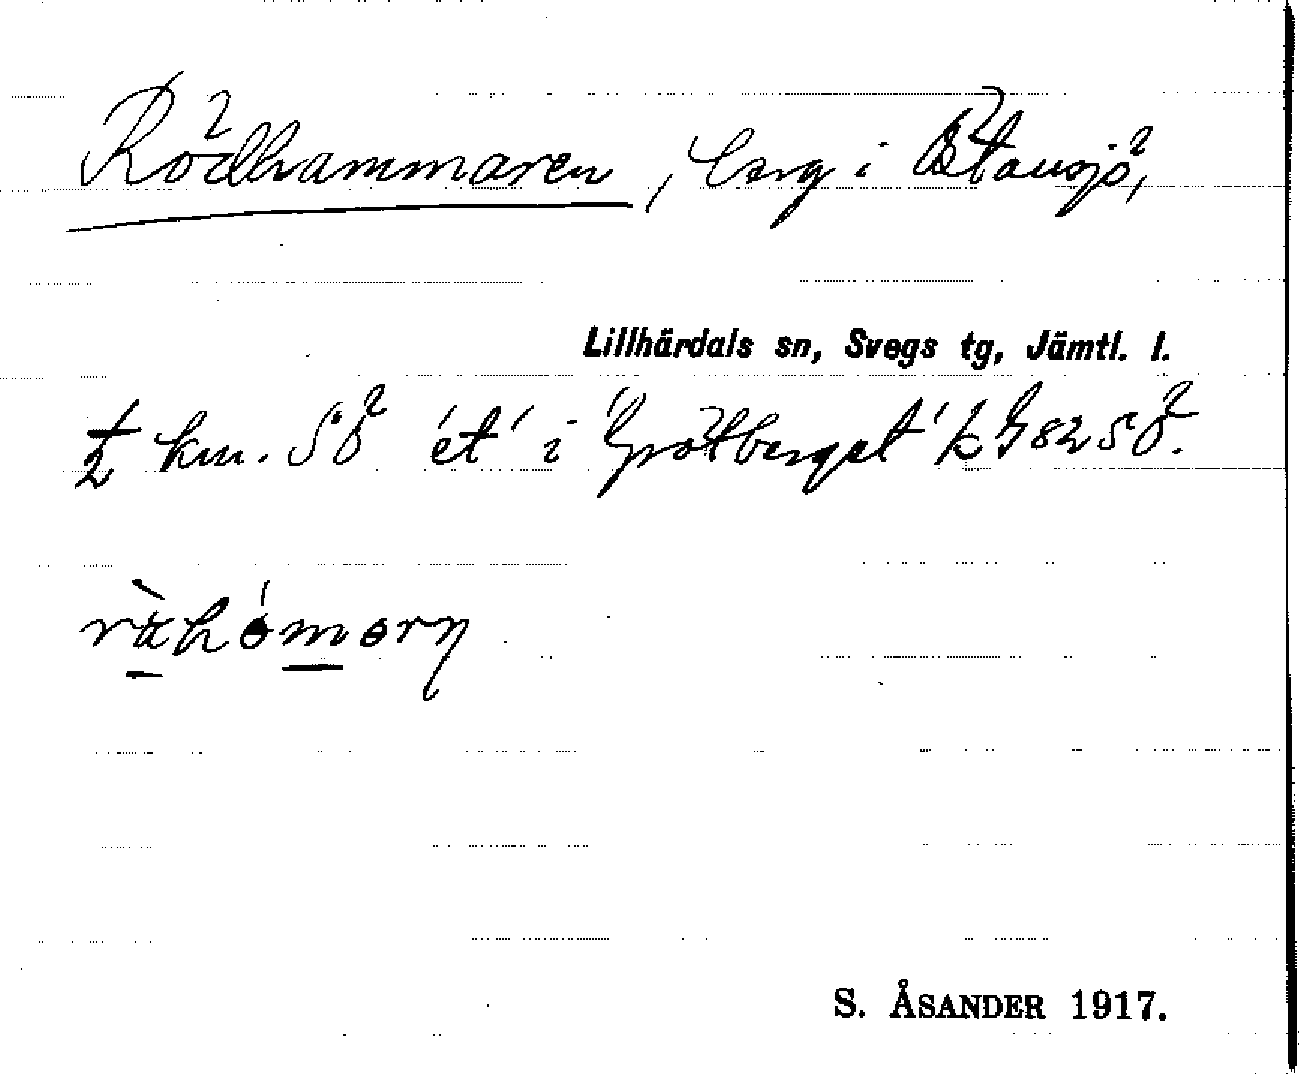 Rödhammaren, berg i Östansjö,
Lillhärdals sn, Svegs tg, Jämtl. l.
½ km. SÖ 'et' i 'Grötberget' k G 82 SÖ.
S. ÅSANDER 1917.